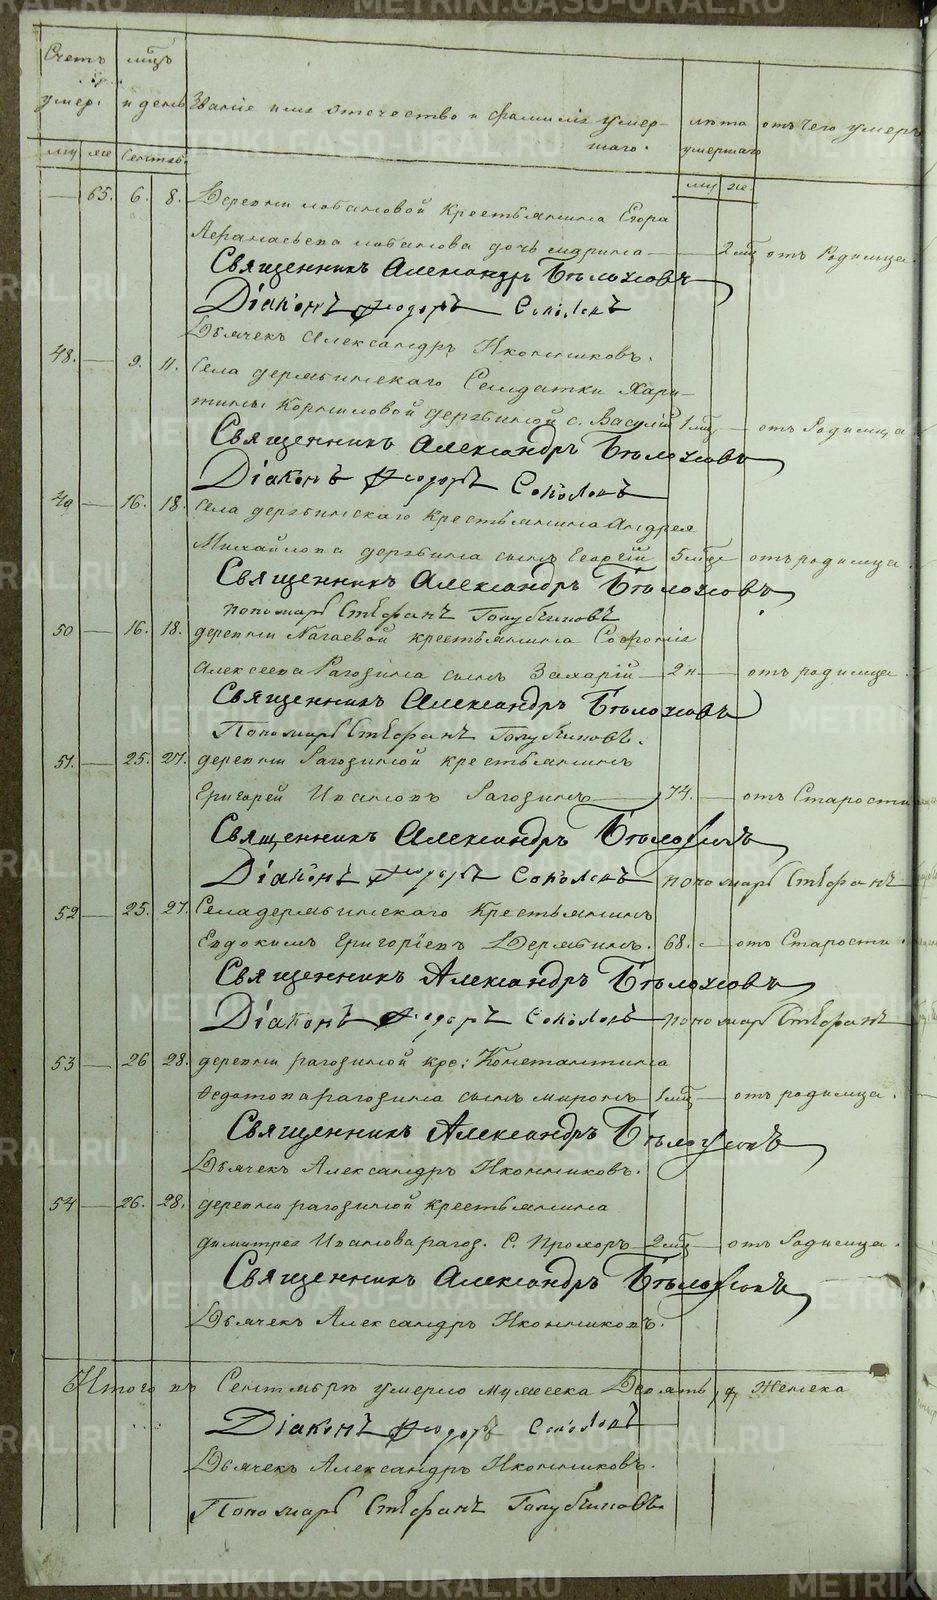 Счетъ умер. мцъ и день Званіе имя отечество и фамилія умершаго. лѣта умершаго отъ чего умеръ
му же Сентяб. му же
— 65. 6. 8. Деревни лобановой Крестьянина Егора
Афанасьева лобанова дочь марина — 2 мц отъ Родимца.
Священникъ Александръ Бѣлоусовъ
Діаконъ Ѳеодоръ Соколовъ
Дьячекъ Александръ Иконниковъ.
48. — 9. 11. Села дерябинскаго Солдатки Хари-
тины Корниловой дерябиной с. Василій 1 мц — отъ Родимца
Священникъ Александръ Бѣлоусовъ
Діаконъ Ѳеодоръ Соколовъ
49 — 16. 18. Села дерябинскаго Крестьянина Андрея
Михайлова дерябина сынъ Георгій 5 мце отъ родимца.
Священникъ Александръ Бѣлоусовъ
пономарь Стефанъ Голубчиковъ
50 — 16. 18. деревни Нагаевой крестьянина Софронія
Алексеева Рагозина сынъ Захарій — 2 н — отъ родимца.
Священникъ Александръ Бѣлоусовъ
Пономарь Стефанъ Голубчиковъ.
51. — 25. 27. деревни Рагозиной крестьянинъ
Григорей Ивановъ Рагозинъ — 74. — отъ Старости
Священникъ Александръ Бѣлоусовъ
Діаконъ Ѳеодоръ Соколовъ пономарь Стефанъ
52 — 25. 27. Села дерябинскаго Крестьянинъ
Евдокимъ Григоріевъ Дерябинъ. 68. — отъ Старости.
Священникъ Александръ Бѣлоусовъ
Діаконъ Ѳеодоръ Соколовъ пономарь Стефанъ
53 — 26 28. деревни рагозиной кре: Константина
Федотова рагозина сынъ миронъ — 1 мц — отъ родимца.
Священникъ Александръ Бѣлоусовъ
Дьячекъ Александръ Иконниковъ.
54 — 26. 28. деревни рагозиной крестьянина
димитрея Иванова рагоз. С. Прохоръ — 2 мц — отъ Родимца.
Священникъ Александръ Бѣлоусовъ
Дьячекъ Александръ Иконниковъ.
Итого въ Сентябрѣ умерло мужеска Женска
Діаконъ Ѳеодоръ Соколовъ
Дьячекъ Александръ Иконниковъ.
Пономарь Стефанъ Голубчиковъ
METRIKI.GASO-URAL.RU